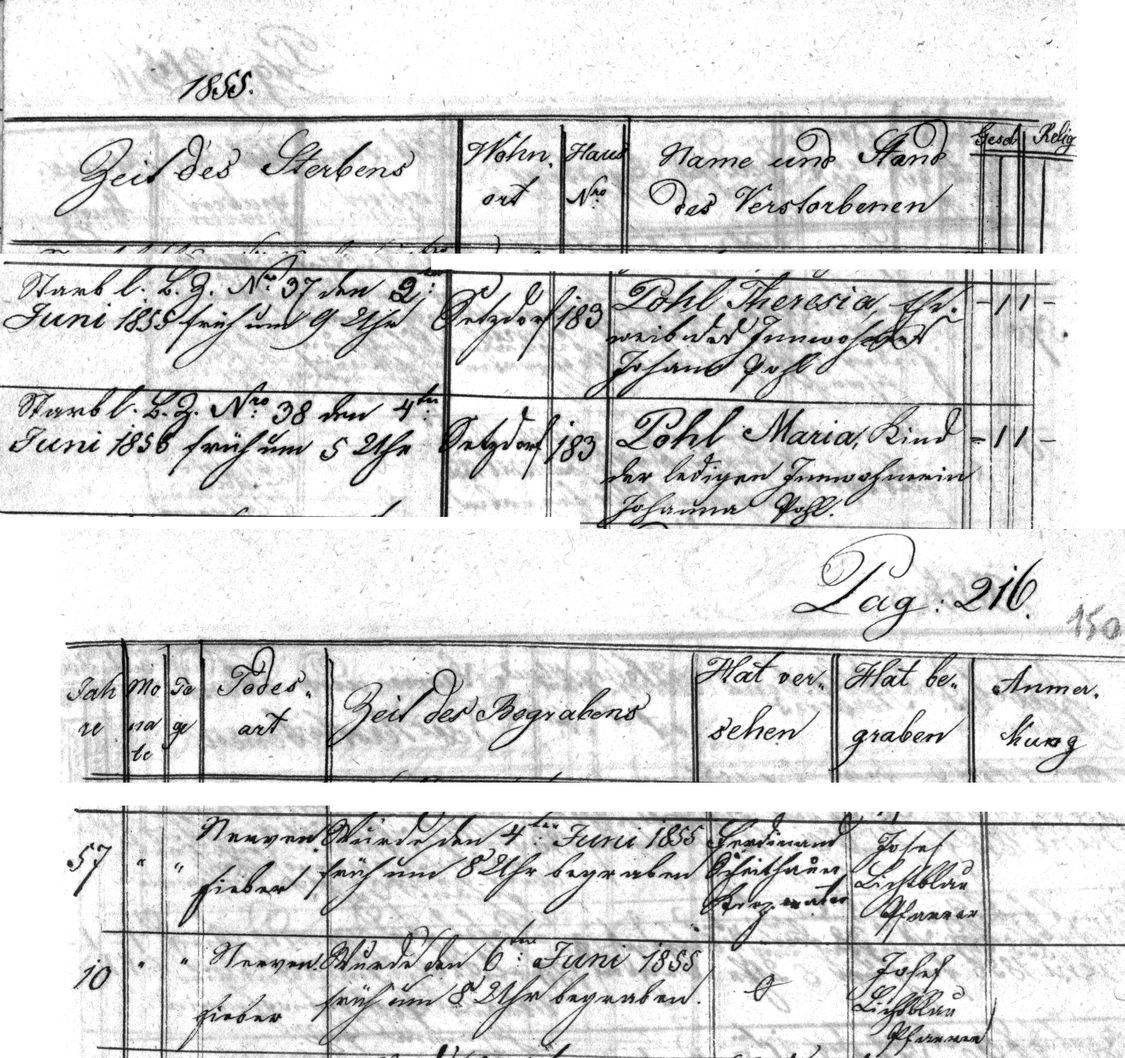 1855.
Zeit des Sterbens
Wohn-
ort
Haus
Nro
Name und Stand
des Verstorbenen
Gesch
Relig
Starb l. B. Z. Nro 37 den 2ten
Juni 1855 früh um 9 Uhr
Setzdorf
183
Pohl Theresia, Ehe-
weib des Inwohners
Johann Pohl
- 1 1 -
Starb l. B. Z. Nro 38 den 4ten
Juni 1855 früh um 5 Uhr
Setzdorf
183
Pohl Maria, Kind
der ledigen Innwohnerin
Johanna Pohl.
- 1 1 -
Pag: 216.
150
Jah
re
Mo
na
te
Ta
ge
Todes-
art
Zeit des Begrabens
Hat ver-
sehen
Hat be-
graben
Anmer-
kung
57 " "
Nerven
fieber
Wurde den 4ten Juni 1855
früh um 8 Uhr begraben
Ferdinand
Scheithauer
Josef
Lichtblau
Pfarrer
10 " "
Nerven
fieber
Wurde den 6ten Juni 1855
früh um 8 Uhr begraben.
Josef
Lichtblau
Pfarrer